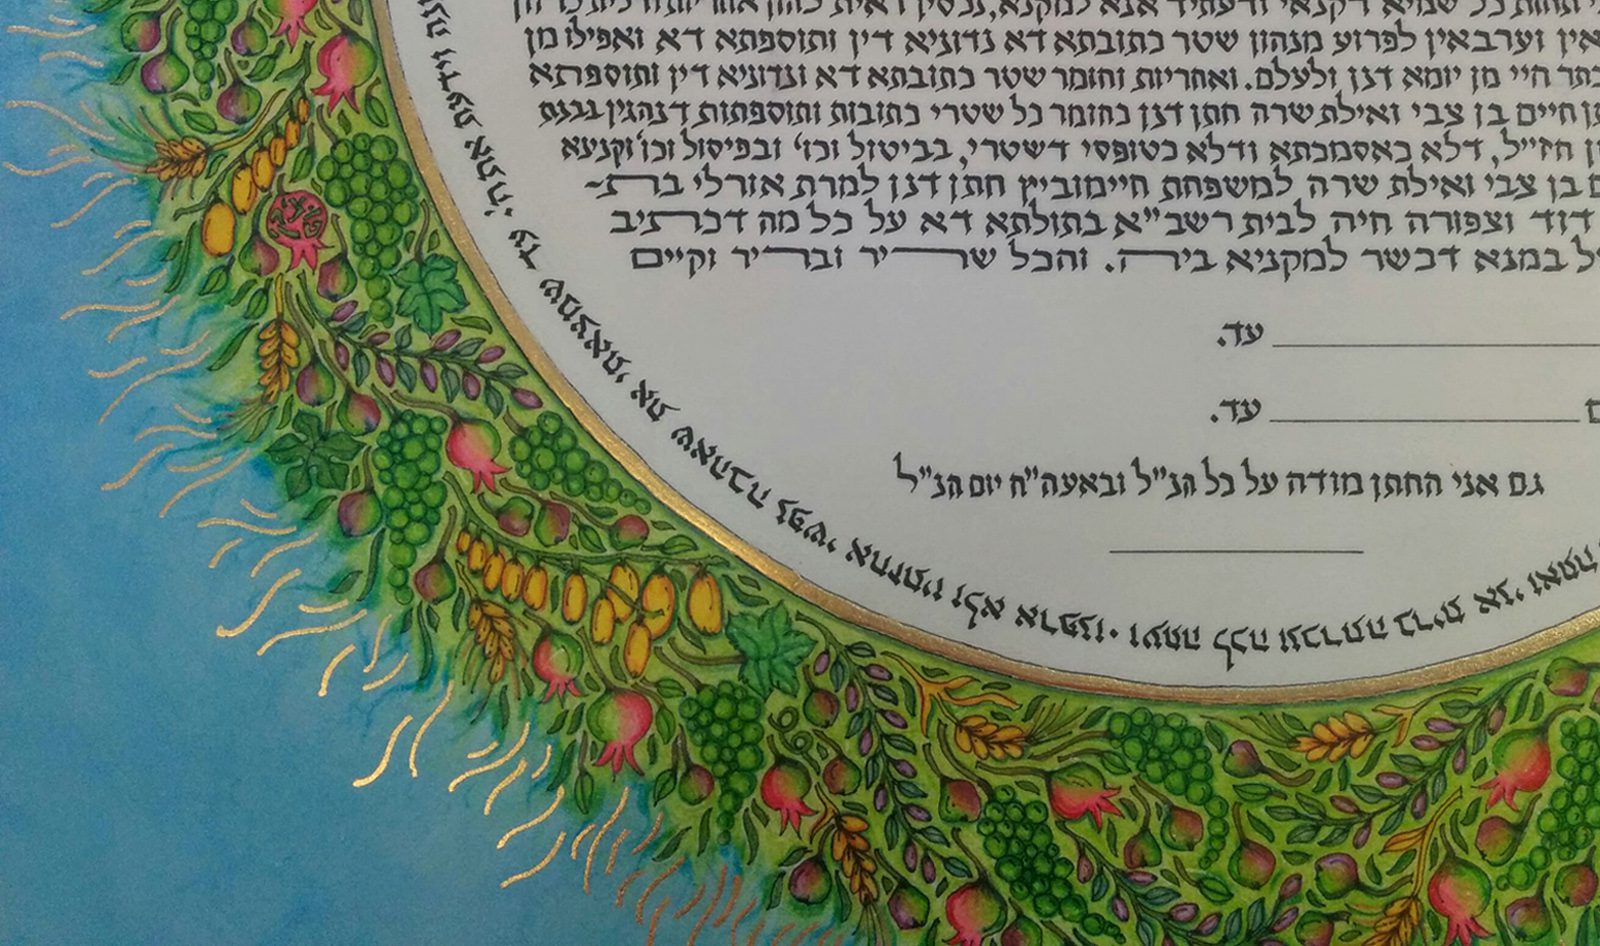 תחות כל שמיא דקנאי ודעתיד אנא למקנא, נכסין דאית להון אחריות ודלית להון
וערבאין לפרוע מנהון שטר כתובתא דא נדוניא דין ותוספתא דא ואפילו מן
בתר חיי מן יומא דנן ולעלם. ואחריות וחומר שטר כתובתא דא ונדוניא דין ותוספתא
חיים בן צבי ואילת שרה חתן דנן כחומר כל שטרי כתובות ותוספתות דנהגין בבנת
חז״ל, דלא כאסמכתא ודלא כטופסי דשטרי, בביטול וכו׳ ובפיסול וכו׳ וקנעא
בן צבי ואילת שרה למשפחת חיימוביץ חתן דנן למרת אורלי בת-
דוד וצפורה חיה לבית רשב״א בתולתא דא על כל מה דכתיב
במנא דכשר למקניא ביה. והכל שריר ובריר וקיים
עד.
עד.
גם אני החתן מודה על כל הנ״ל ובאעה״ח יום הנ״ל
וידעת את ה׳. עד שמצאתי את שאהבה נפשי אחזתיו ולא ארפנו. ועתה לכה נכרתה ברית אני ואתה